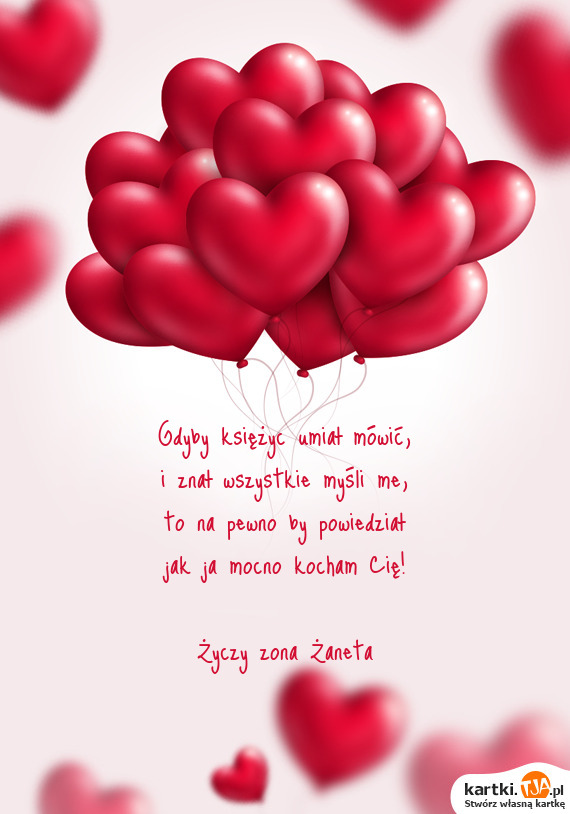 Gdyby księżyc umiał mówić,
i znał wszystkie myśli me,
to na pewno by powiedział
jak ja mocno kocham Cię!
Życzy zona Żaneta
kartki.TJA.pl
Stwórz własną kartkę